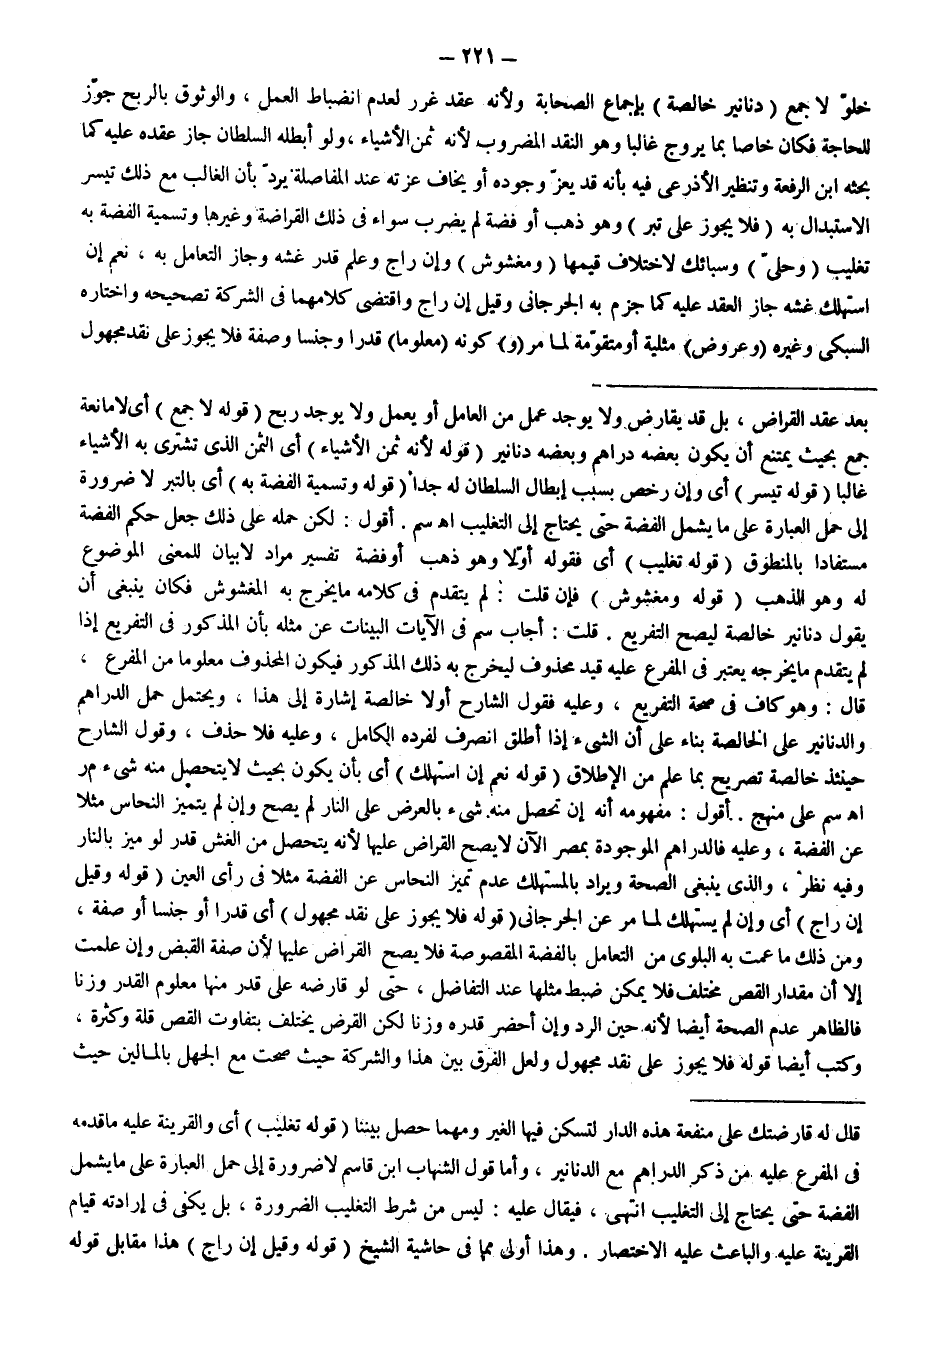 – ٢٢١ –
خلوّ لا جمع ( دنانير خالصة ) بإجماع الصحابة ولأنه عقد غرر لعدم انضباط العمل ، والوثوق بالربح جوّز
للحاجة فكان خاصا بما يروج غالبا وهو النقد المضروب لأنه ثمن الأشياء ، ولو أبطله السلطان جاز عقده عليه كما
بحثه ابن الرفعة وتنظير الأذرعى فيه بأنه قد يعزّ وجوده أو يخاف عزته عند المفاصلة يردّ بأن الغالب مع ذلك تيسر
الاستبدال به ( فلا يجوز على تبر ) وهو ذهب أو فضة لم يضرب سواء فى ذلك القراضة وغيرها وتسمية الفضة به
تغليب ( وحلىّ ) وسبائك لاختلاف قيمها ( ومغشوش ) وإن راج وعلم قدر غشه وجاز التعامل به ، نعم إن
استهلك غشه جاز العقد عليه كما جزم به الجرجانى وقيل إن راج واقتضى كلامهما فى الشركة تصحيحه واختاره
السبكى وغيره (وعروض) مثلية أو متقوّمة لما مر (و) كونه (معلوما) قدرا وجنسا وصفة فلا يجوز على نقد مجهول
بعد عقد القراض ، بل قد يقارض ولا يوجد عمل من العامل أو يعمل ولا يوجد ربح ( قوله لا جمع ) أى لا مانعة
جمع بحيث يمتنع أن يكون بعضه دراهم وبعضه دنانير ( قوله لأنه ثمن الأشياء ) أى الثمن الذى تشترى به الأشياء
غالبا ( قوله تيسر ) أى وإن رخص بسبب إبطال السلطان له جدا ( قوله وتسمية الفضة به ) أى بالتبر لا ضرورة
إلى حمل العبارة على ما يشمل الفضة حتى يحتاج إلى التغليب اه سم . أقول : لكن حمله على ذلك جعل حكم الفضة
مستفادا بالمنطوق ( قوله تغليب ) أى فقوله أوّلا وهو ذهب أو فضة تفسير مراد لا بيان للمعنى الموضوع
له وهو الذهب ( قوله ومغشوش ) فإن قلت : لم يتقدم فى كلامه ما يخرج به المغشوش فكان ينبغى أن
يقول دنانير خالصة ليصح التفريع . قلت : أجاب سم فى الآيات البينات عن مثله بأن المذكور فى التفريع إذا
لم يتقدم ما يخرجه يعتبر فى المفرع عليه قيد محذوف ليخرج به ذلك المذكور فيكون المحذوف معلوما من المفرع ،
قال : وهو كاف فى صحة التفريع ، وعليه فقول الشارح أولا خالصة إشارة إلى هذا ، ويحتمل حمل الدراهم
والدنانير على الخالصة بناء على أن الشىء إذا أطلق انصرف لفرده الكامل ، وعليه فلا حذف ، وقول الشارح
حينئذ خالصة تصريح بما علم من الإطلاق ( قوله نعم إن استهلك ) أى بأن يكون بحيث لا يتحصل منه شىء م ر
اه سم على منهج . أقول : مفهومه أنه إن تحصل منه شىء بالعرض على النار لم يصح وإن لم يتميز النحاس مثلا
عن الفضة ، وعليه فالدراهم الموجودة بمصر الآن لا يصح القراض عليها لأنه يتحصل من الغش قدر لو ميز بالنار
وفيه نظر ، والذى ينبغى الصحة ويراد بالمستهلك عدم تميز النحاس عن الفضة مثلا فى رأى العين ( قوله وقيل
إن راج ) أى وإن لم يستهلك لما مر عن الجرجانى ( قوله فلا يجوز على نقد مجهول ) أى قدرا أو جنسا أو صفة ،
ومن ذلك ما عمت به البلوى من التعامل بالفضة المقصوصة فلا يصح القراض عليها لأن صفة القبض وإن علمت
إلا أن مقدار القص مختلف فلا يمكن ضبط مثلها عند التفاضل ، حتى لو قارضه على قدر منها معلوم القدر وزنا
فالظاهر عدم الصحة أيضا لأنه حين الرد وإن أحضر قدره وزنا لكن القرض يختلف بتفاوت القص قلة وكثرة ،
وكتب أيضا قوله فلا يجوز على نقد مجهول ولعل الفرق بين هذا والشركة حيث صحت مع الجهل بالمالين حيث
قال له قارضتك على منفعة هذه الدار لتسكن فيها الغير ومهما حصل بيننا ( قوله تغليب ) أى والقرينة عليه ما قدمه
فى المفرع عليه من ذكر الدراهم مع الدنانير ، وأما قول الشهاب ابن قاسم لا ضرورة إلى حمل العبارة على ما يشمل
الفضة حتى يحتاج إلى التغليب انتهى ، فيقال عليه : ليس من شرط التغليب الضرورة ، بل يكفى فى إرادته قيام
القرينة عليه والباعث عليه الاختصار . وهذا أولى مما فى حاشية الشيخ ( قوله وقيل إن راج ) هذا مقابل قوله